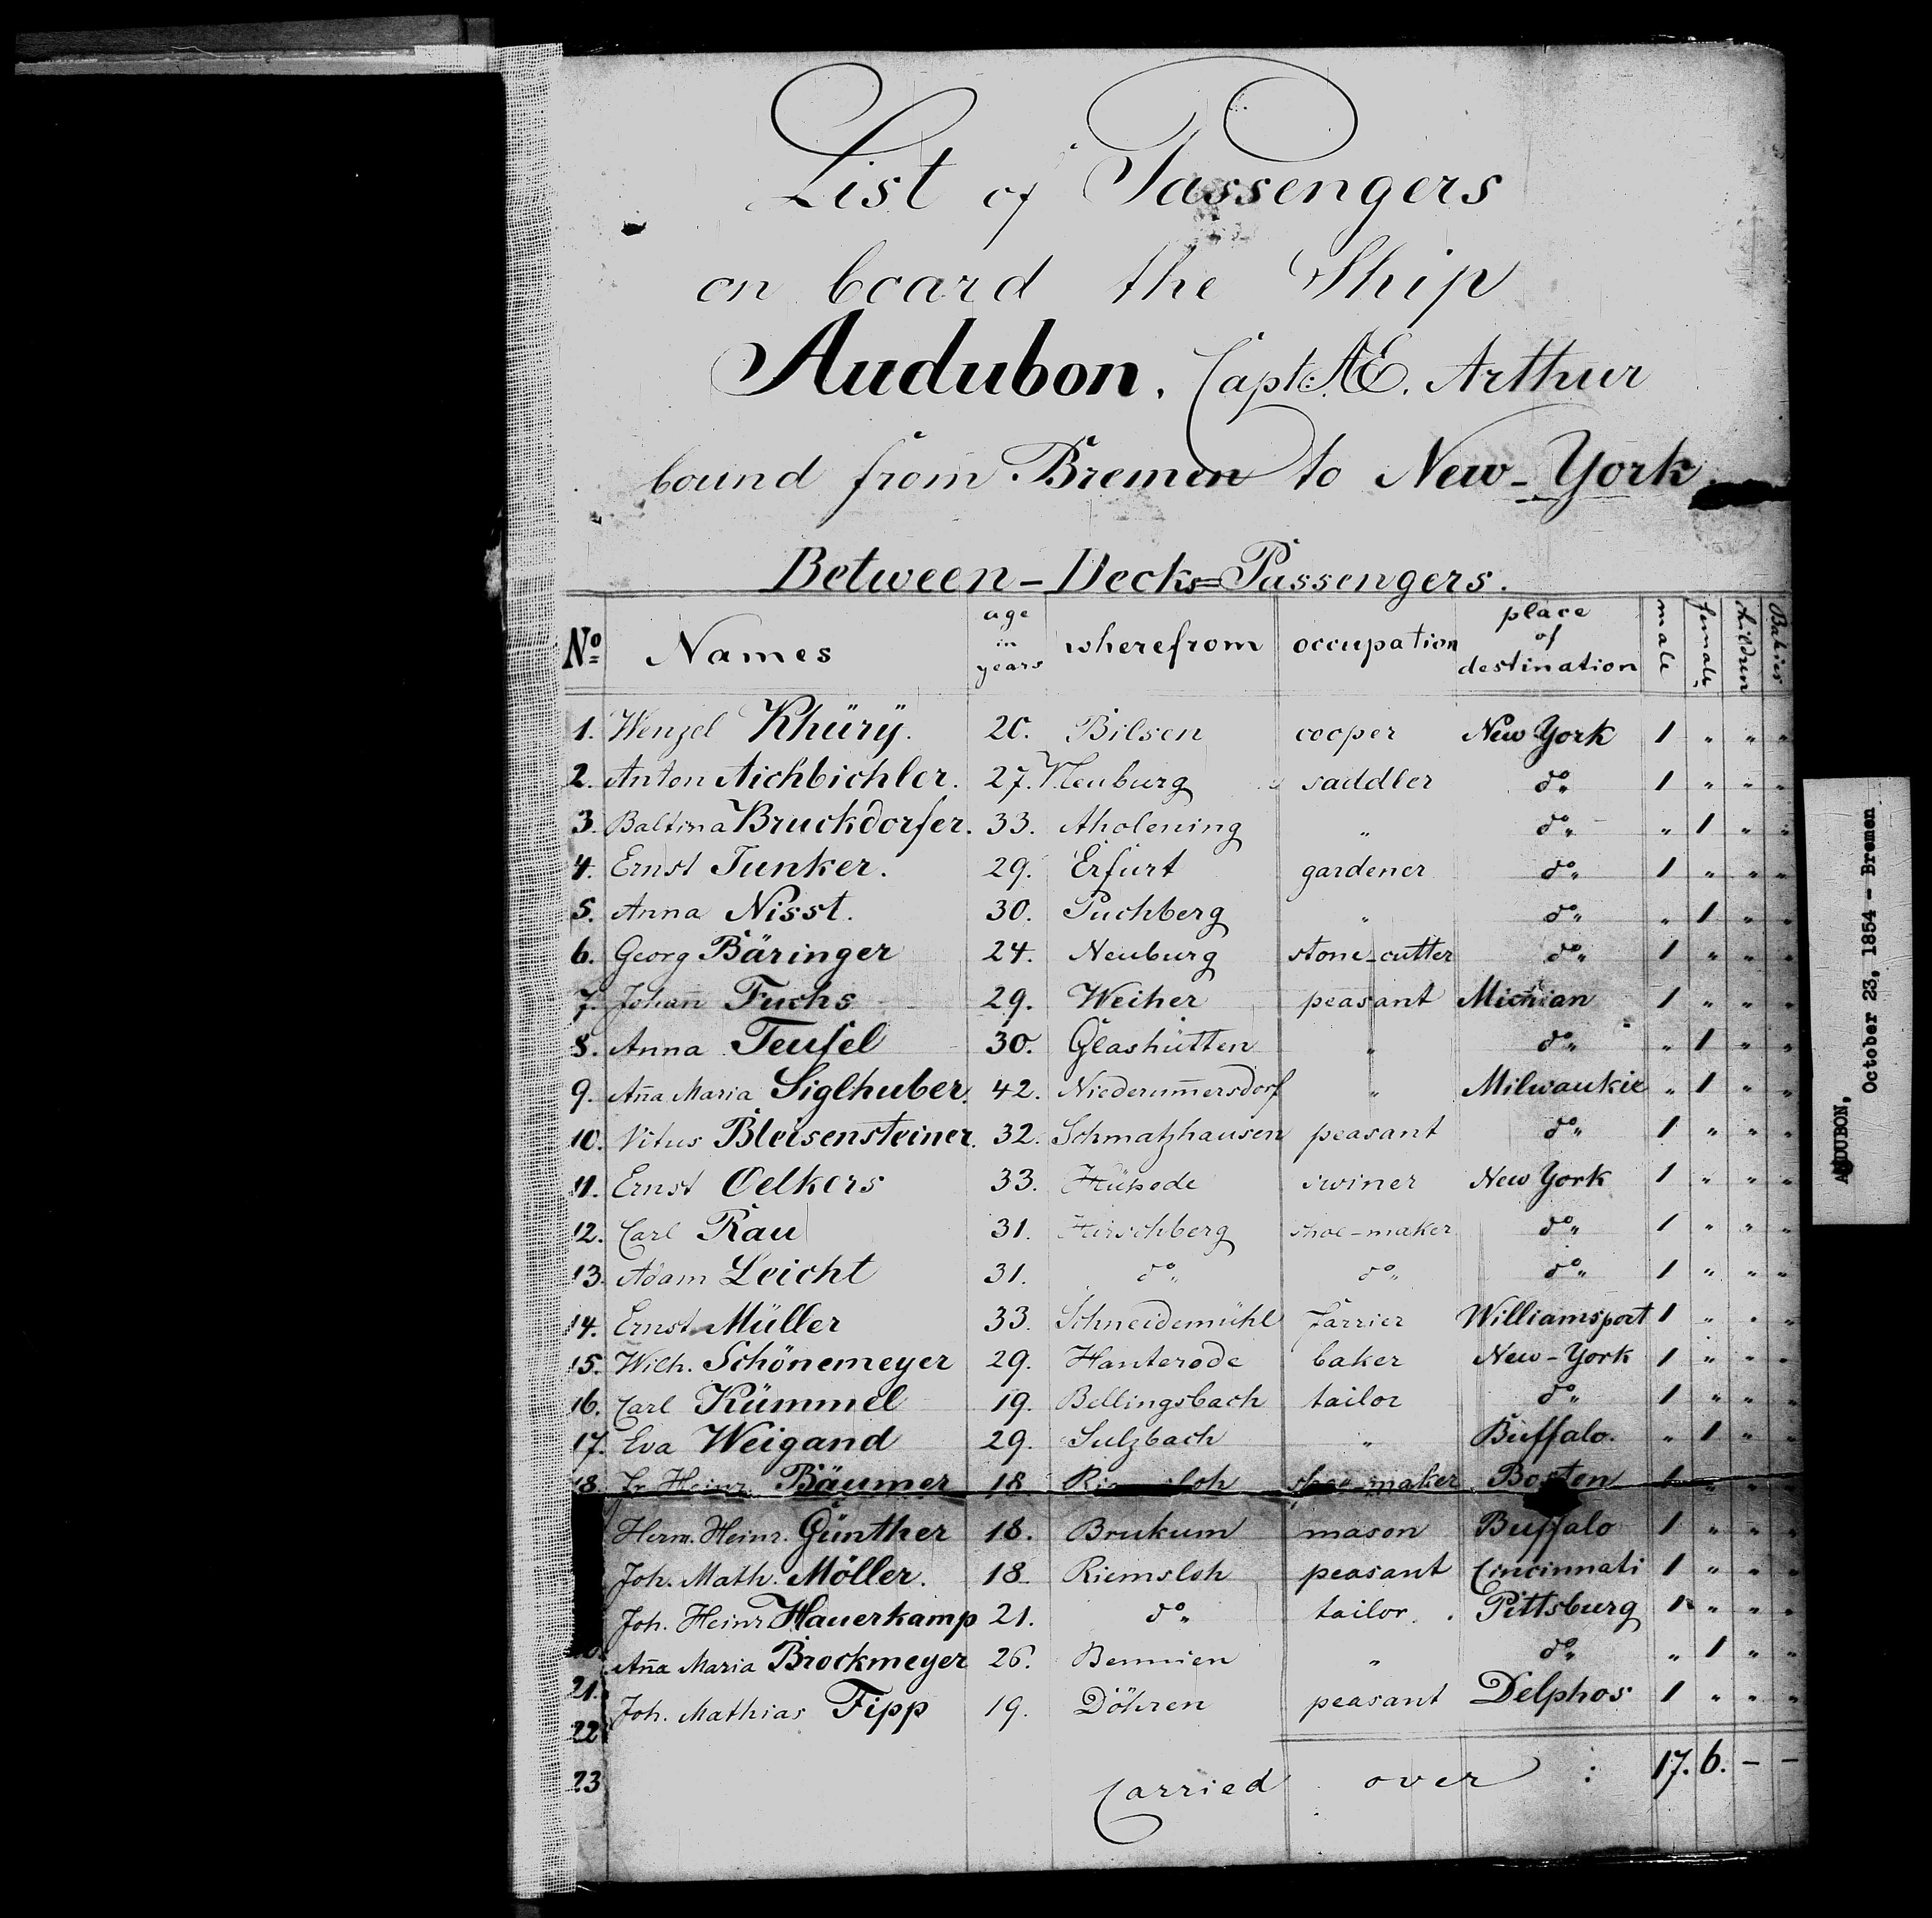 List of Passengers
on board the Ship
Audubon, Capt: A.E. Arthur
bound from Bremen to New-York.
Between-Decks=Passengers.
No Names age in years wherefrom occupation place of destination male female children Babies
1. Wenzel Khürÿ. 20. Bilsen cooper New York 1 " " "
2. Anton Aichbichler. 27. Neuburg saddler do " 1 " " "
3. Baltina Bruckdorfer. 33. Aholening " do " " 1 " "
4. Ernst Junker. 29. Erfurt gardener do " 1 " " "
5. Anna Nisst. 30. Puchberg " do " " 1 " "
6. Georg Bäringer 24. Neuburg stone-cutter do " 1 " " "
7. Johan̄ Fuchs 29. Weiher peasant Michian 1 " " "
8. Anna Teufel 30. Glashütten " do " " 1 " "
9. An̄a Maria Siglhuber. 42. Niederum̄ersdorf " Milwaukie " 1 " "
10. Vitus Bleisensteiner. 32. Schmatzhausen peasant do " 1 " " "
11. Ernst Oelkers 33. Hüpede New York 1 " " "
12. Carl Rau 31. Hirschberg shoe-maker do " 1 " " "
13. Adam Leicht 31. do " do " do " 1 " " "
14. Ernst Müller 33. Schneidemühl farrier Williamsport 1 " " "
15. Wilh. Schönemeyer 29. Hanterode baker New-York 1 " " "
16. Carl Kümmel 19. Bellingsbach tailor do " 1 " " "
17. Eva Weigand 29. Sulzbach " Buffalo. " 1 " "
18. Fr. Heinr. Bäumer 18. shoe-maker Boston 1 " " "
Herm. Heinr. Günther 18. Brukum mason Buffalo 1 " " "
Joh. Math. Möller. 18. Riemsloh peasant Cincinnati 1 " " "
Joh. Heinr Hauerkamp 21. do " tailor. Pittsburg 1 " " "
An̄a Maria Brockmeyer 26. Bennien " do " " 1 " "
21. Joh. Mathias Fipp 19. Döhren peasant Delphos 1 " " "
22
23 Carried over : 17. 6. - -
AUDUBON,
October 23, 1854 - Bremen